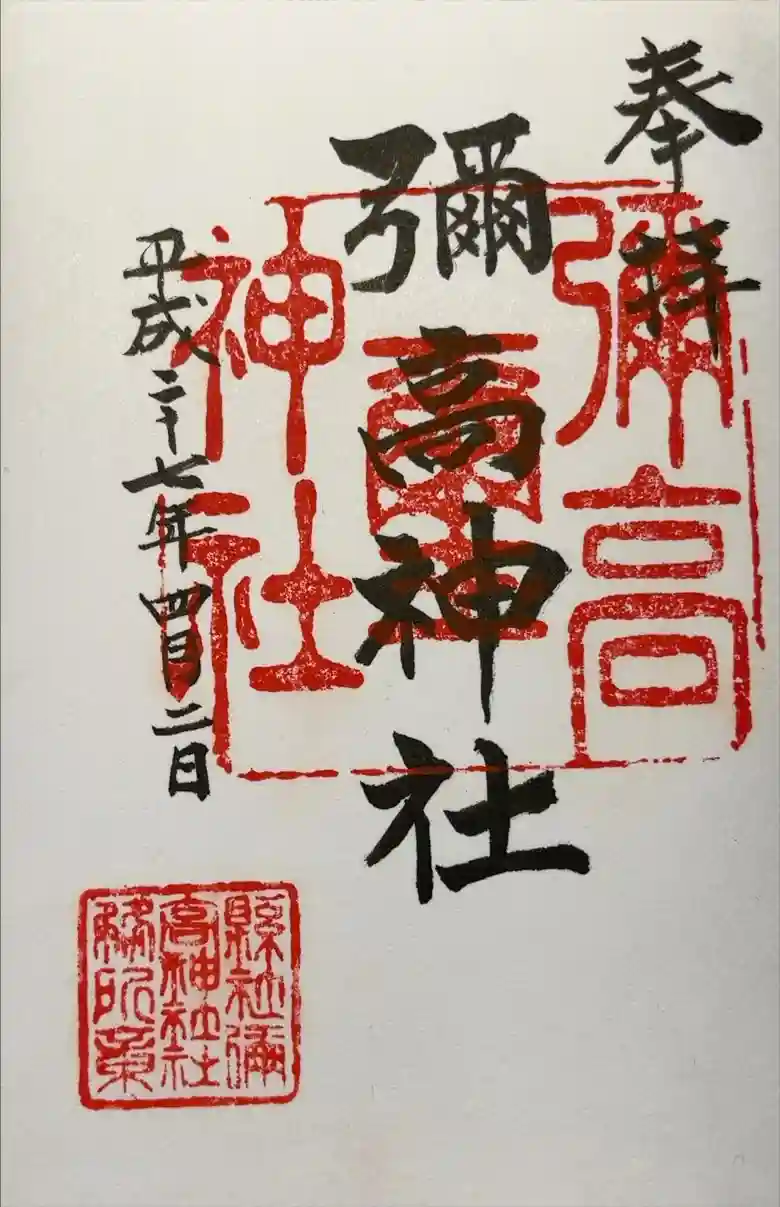 奉拝
彌高神社
平成二十七年四月二日
彌高
神社
縣社彌
高神社社
務所章